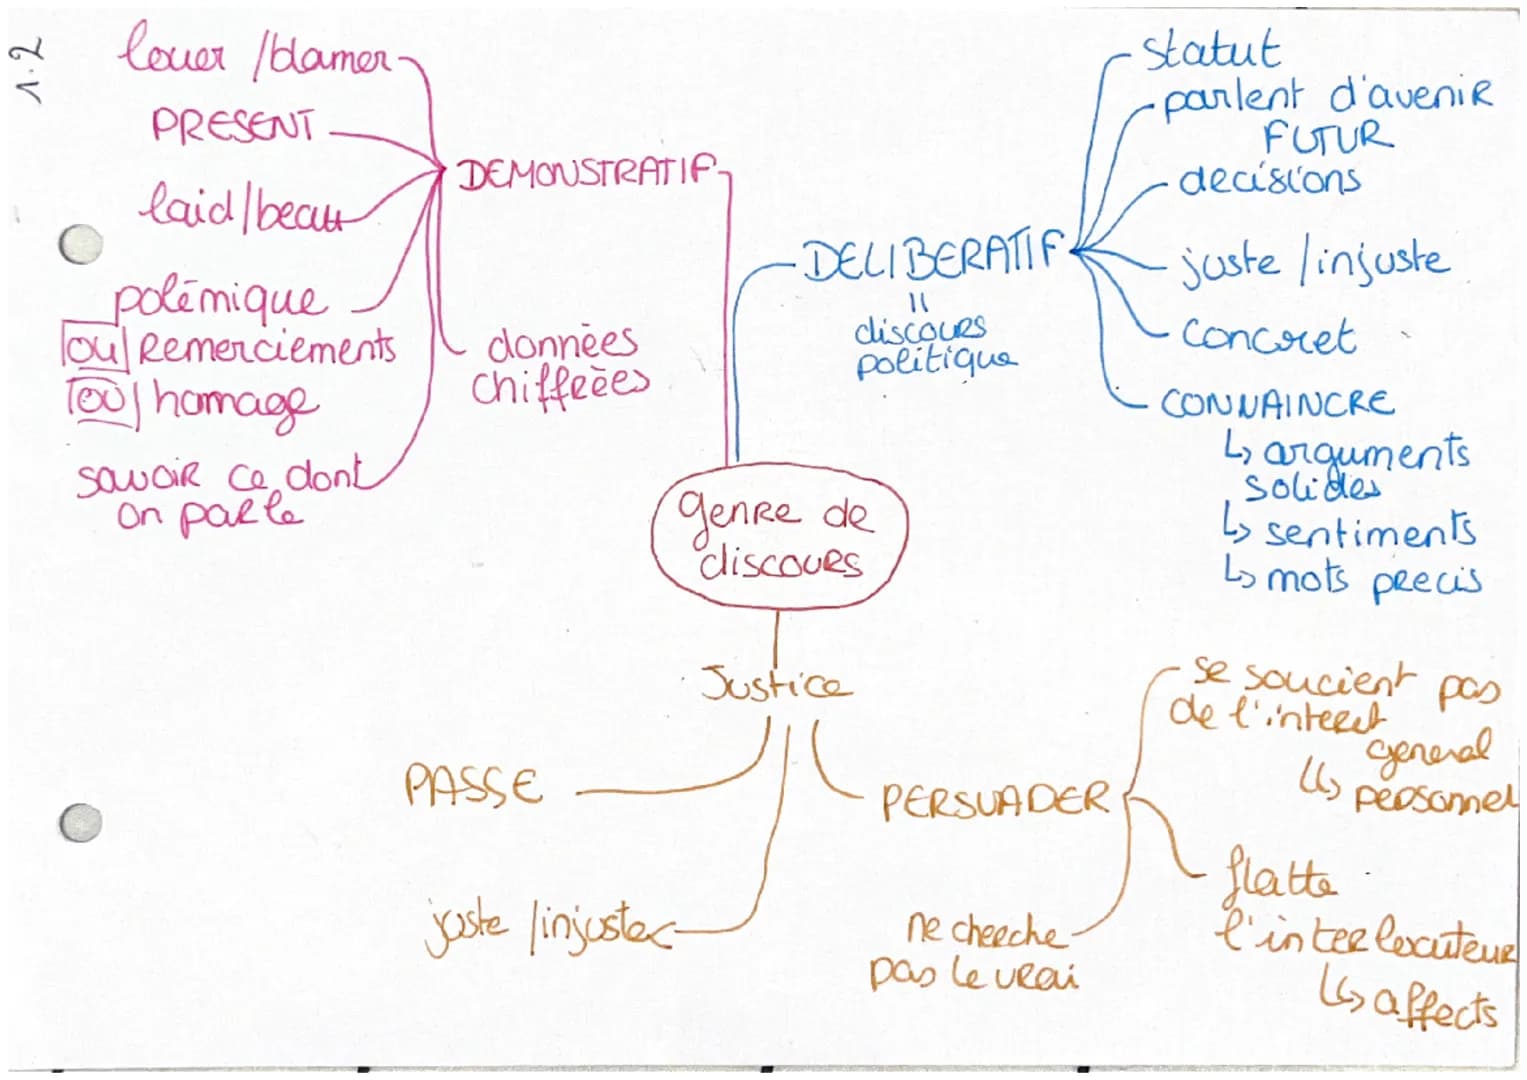 1.2
louer / blamer
PRESENT
laid / beau
polémique
ou Remerciements
ou homage
savoir ce dont
on parle
données
chiffrées
DEMONSTRATIF
DELIBERATIF
=
discours
politique
statut
parlent d'avenir
FUTUR
decisions
juste / injuste
concret
CONVAINCRE
↳ arguments
solides
↳ sentiments
↳ mots precis
genre de
discours
Justice
PASSE
juste / injuste
PERSUADER
se soucient pas
de l'interet
general
↳ personnel
flatte
l'interlocuteur
↳ affects
ne cherche
pas le vrai